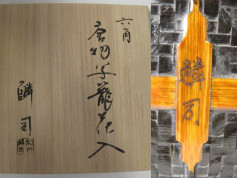 六角
唐物写籠花入
鱗司
鱗司